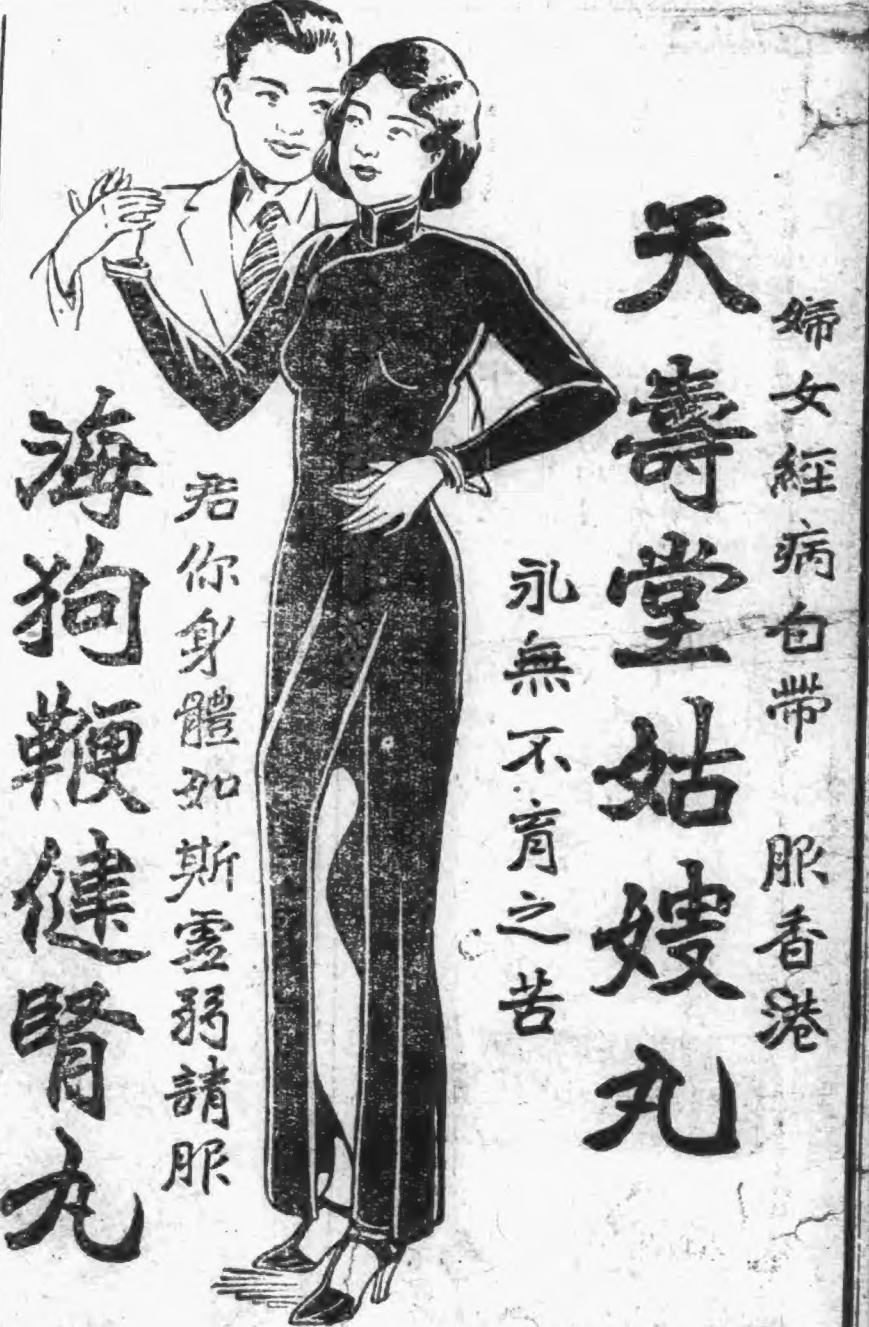 婦女經病白帶 服香港
天壽堂姑嫂丸
永無不育之苦
君你身體如斯虛弱請服
海狗鞭健腎丸